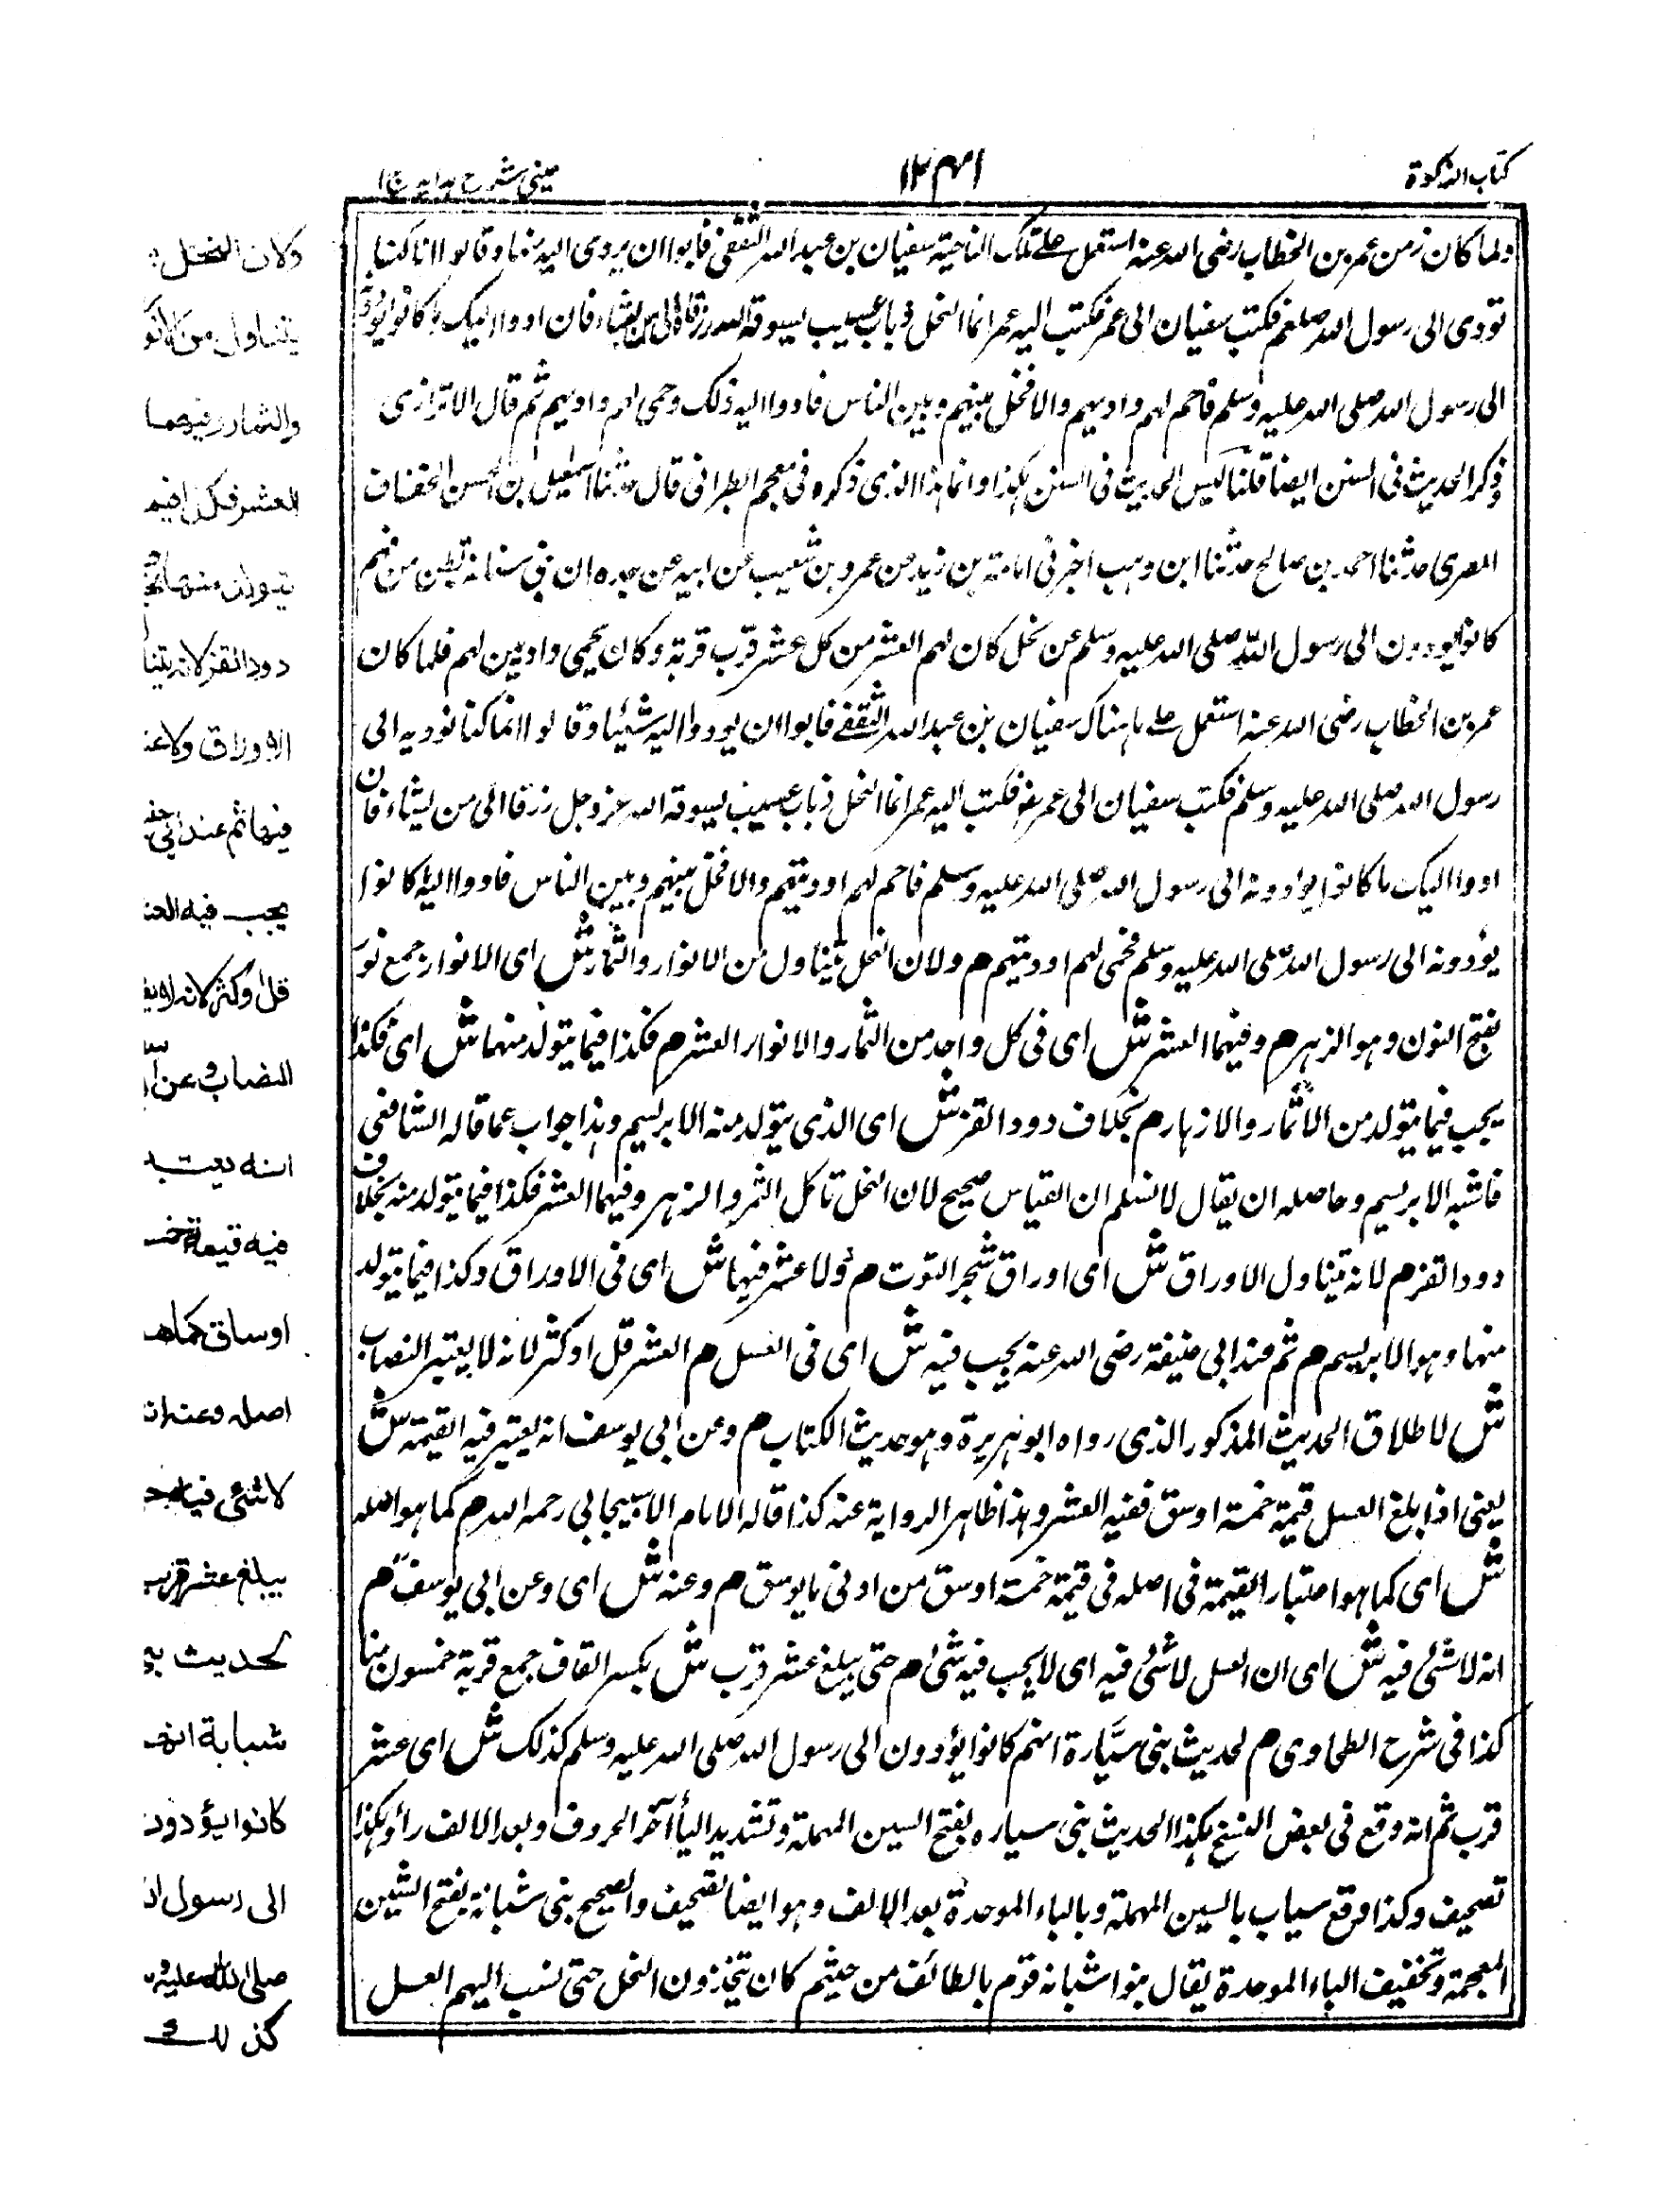 كتاب الزكوة
١٢٤١
عيني شرح هدايه ج ١
ولما كان زمن عمر بن الخطاب رضى الله عنه استعمل على تلك الناحية سفيان بن عبد الله الثقفى فابوا ان يردى اليه بنها وقالوا انا كنا
نودى الى رسول الله صلعم فكتب سفيان الى عمر فكتب اليه عمر انما النحل ذباب عسيب يسوقه الله رزقا الى من يشاء فان ادوا اليك ما كانوا يؤدون
الى رسول الله صلى الله عليه وسلم فاحم لهم واديهم والا فخل بينهم وبين الناس فادوا اليه ذلك وحمى لهم واديهم ثم قال الاترازى
وذكر الحديث فى السنن ايضا قلنا ليس الحديث فى السنن هكذا وانما هذا الذى ذكره فى معجم الطبرانى قال حدثنا اسمعيل بن الحسن الخفاف
المصرى حدثنا احمد بن صالح حدثنا ابن وهب اخبرنى اسامة بن زيد عن عمرو بن شعيب عن ابيه عن جده ان بنى سنانة بطن من فهم
كانوا يودون الى رسول الله صلى الله عليه وسلم عن نحل كان لهم العشر من كل عشر قرب قربة وكان يحمى واديين لهم فلما كان
عمر بن الخطاب رضى الله عنه استعمل على ما هناك سفيان بن عبد الله الثقفى فابوا ان يودوا اليه شيئا وقالوا انما كنا نوديه الى
رسول الله صلى الله عليه وسلم فكتب سفيان الى عمر رضه فكتب اليه عمر انما النحل ذباب عسيب يسوقه الله عز وجل رزقا الى من يشاء فان
ادوا اليك ما كانوا يوادونه الى رسول الله صلى الله عليه وسلم فاحم لهم اوديتهم والا فخل بينهم وبين الناس فادوا اليه ما كانوا
يؤدونه الى رسول الله صلى الله عليه وسلم فحمى لهم اوديتهم م ولان النحل يتناول من الانوار والثمار ش اى الانوار جمع نور
بفتح النون وهو الزهر م وفيهما العشر ش اى فى كل واحد من الثمار والانوار العشر م فكذا فيما يتولد منهما ش اى فكذا
يجب فيما يتولد من الاثمار والازهار م بخلاف دود القز ش اى الذى يتولد منه الابريسم وهذا جواب عما قاله الشافعى
فاشبه الابريسم وحاصله ان يقال لا نسلم ان القياس صحيح لان النحل تاكل الثمر والزهر وفيهما العشر فكذا فيما يتولد منه بخلاف
دود القز م لانه يتناول الاوراق ش اى اوراق شجر التوت م ولا عشر فيها ش اى فى الاوراق وكذا فيما يتولد
منها وهو الابريسم م ثم عند ابى حنيفة رضى الله عنه يجب فيه ش اى فى العسل م العشر قل اوكثر لانه لا يعتبر النصاب
ش لاطلاق الحديث المذكور الذى رواه ابو هريرة وهو حديث الكتاب م وعن ابى يوسف انه يعتبر فيه القيمة ش
يعنى اذا بلغ العسل قيمة خمسة اوسق ففيه العشر وهذا ظاهر الرواية عنه كذا قاله الامام الاسبيجابى رحمه الله م كما هو اصله
ش اى كما هو اعتبار القيمة فى اصله فى قيمة خمسة اوسق من ادنى ما يوسق م وعنه ش اى وعن ابى يوسف م
انه لا شئ فيه ش اى ان العسل لا شئ فيه اى لا يجب فيه شئ م حتى يبلغ عشر قرب ش بكسر القاف جمع قربة خمسون منا
كذا فى شرح الطحاوى م لحديث بنى سيّارة انهم كانوا يؤدون الى رسول الله صلى الله عليه وسلم كذلك ش اى عشر
قرب ثم انه وقع فى بعض النسخ هكذا الحديث بنى سياره بفتح السين المهملة وتشديد اليا آخر الحروف وبعد الالف راء وهكذا
تصحيف وكذا وقع سياب بالسين المهملة وبالباء الموحدة بعد الالف وهو ايضا تصحيف والصحيح بنى شبانة بفتح الشين
المعجمة وتخفيف الباء الموحدة يقال بنوا شبانه قوم بالطائف من خيثم كان يتخذون النحل حتى نسب اليهم العسل
ولان النحل
يتناول من الانو
والثمار وفيهما
العشر فكذا فيم
يتولد منها بخ
دود القز لانه يتنا
الاوراق ولا عش
فيها ثم عند ابى حنف
يجب فيه العش
قل اوكثر لانه لا يع
النصاب وعن ا
انه يعتبـ
فيه قيمة خمسـ
اوساق كما هـ
اصله وعنه ان
لا شئ فيه حـ
يبلغ عشر قرب
لحديث بنى
شبابة انهـ
كانوا يؤدون
الى رسول ا
صلى الله عليه و
كذلك